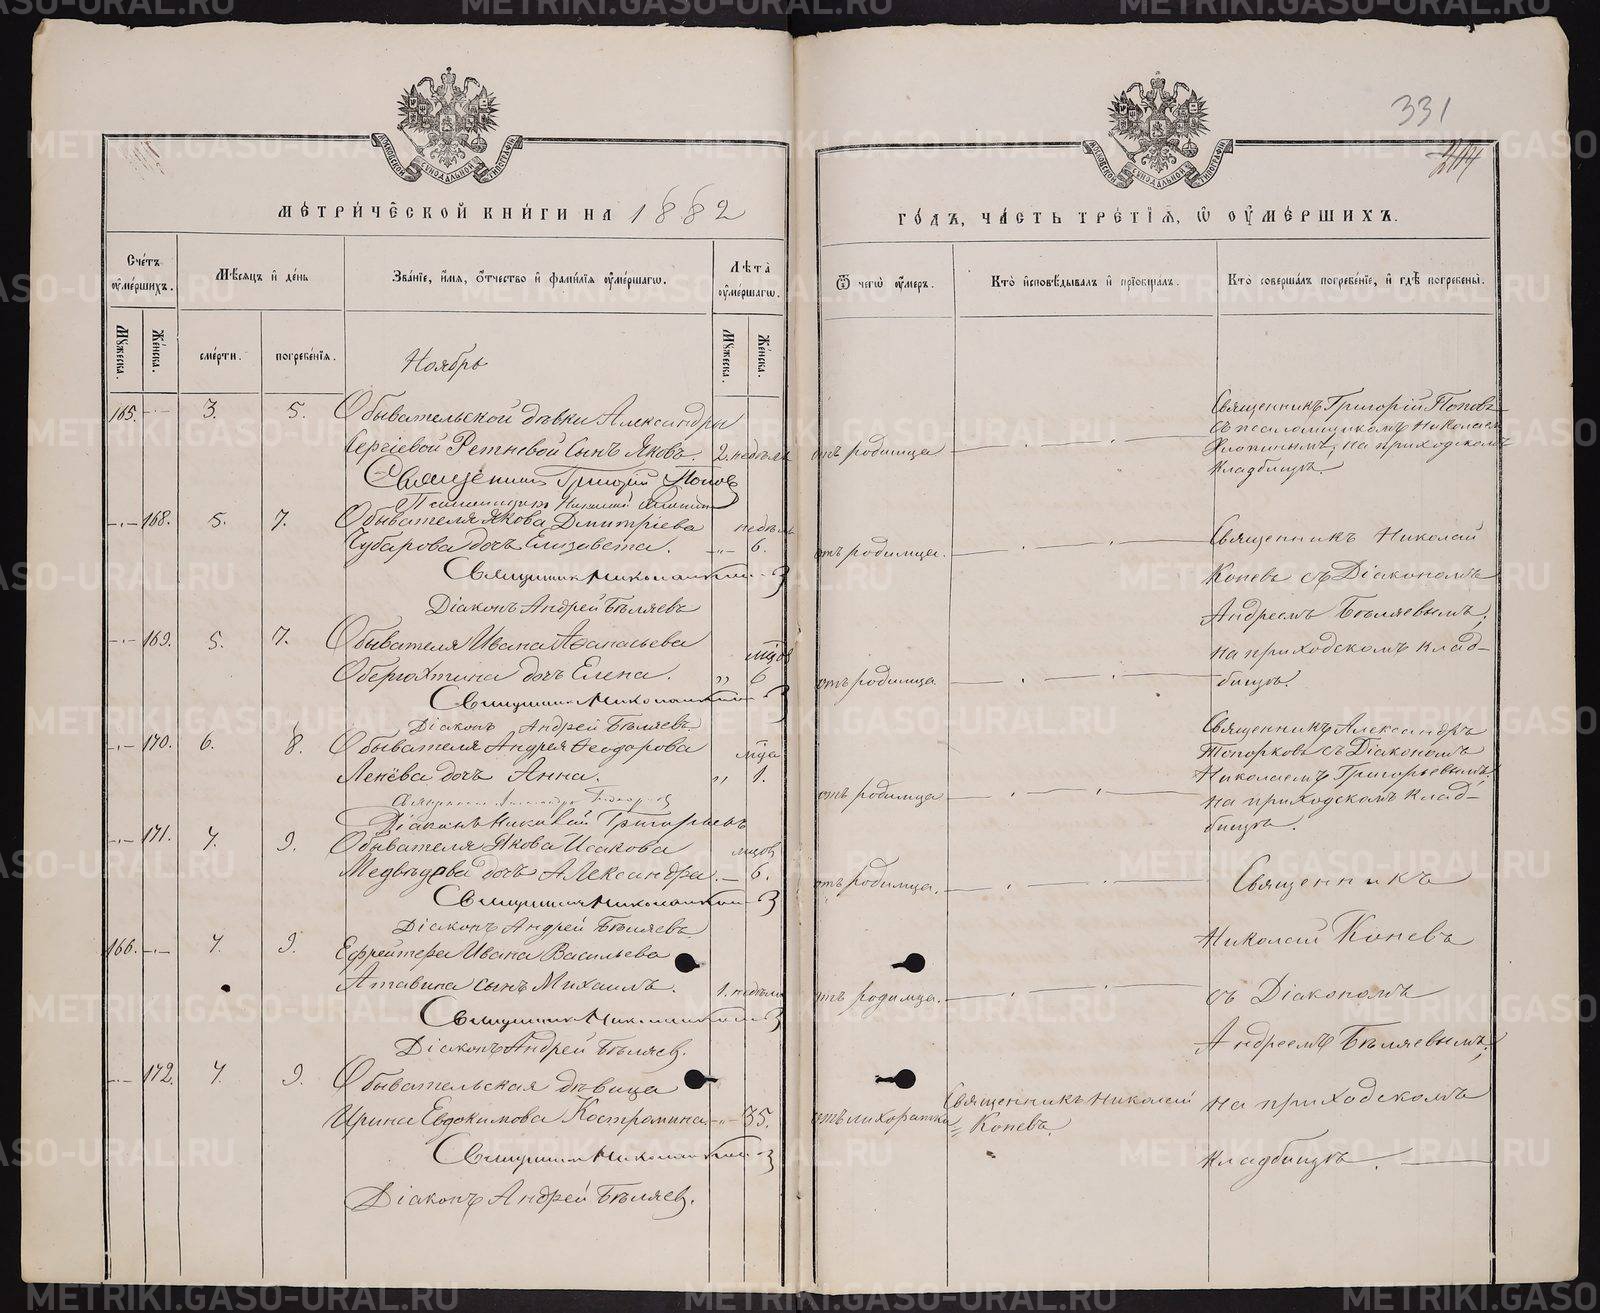 331
МОСКОВСКОЙ СѴНОДАЛЬНОЙ ТИПОГРАФІИ
МОСКОВСКОЙ СѴНОДАЛЬНОЙ ТИПОГРАФІИ
МЕТРИЧЕСКОЙ КНИГИ НА 1882
ГОДЪ, ЧАСТЬ ТРЕТІЯ, Ѡ ОУМЕРШИХЪ.
Счетъ оумершихъ.
Мѣсяцъ и день
Званіе, имя, отчество и фамилія оумершагѡ.
Лѣта оумершагѡ.
Ѿ чегѡ оумеръ.
Кто исповѣдывалъ и пріобщалъ.
Кто совершалъ погребеніе, и гдѣ погребены.
Мужеска. Женска. смерти. погребенія. Мужеска. Женска.
Ноябрь
165. 3. 5. Обывательской дѣвки Александры
Сергіевой Ретневой сынъ Яковъ. 2. недѣль отъ родимца
Священникъ Григорій Поповъ
Священникъ Григорій Поповъ
съ псаломщикомъ Николаемъ
на приходскомъ
кладбищѣ.
168. 5. 7. Обывателя Якова Дмитріева недѣль
Чубарова дочь Елизавета. 6. отъ родимца.
Священникъ Николай
Діаконъ Андрей Бѣляевъ
Священникъ Николай
Коневъ съ Діакономъ
Андреемъ Бѣляевымъ,
на приходскомъ клад-
бищѣ.
169. 5. 7. Обывателя Ивана Аѳанасьева мцов
Оберюхтина дочь Елена. „ 6 отъ родимца.
Священникъ Николай
Діаконъ Андрей Бѣляевъ
170. 6. 8. Обывателя Андрея Ѳеодорова мца
Ленёва дочь Анна. „ 1. отъ родимца
Діаконъ Николай Григорьевъ
Священникъ Александръ
Топорковъ съ Діакономъ
Николаемъ Григорьевымъ,
на приходскомъ клад-
бищѣ.
171. 7. 9. Обывателя Якова Исакова мцов
Медвѣдева дочь Александра. 6. отъ родимца.
Священникъ Николай
Діаконъ Андрей Бѣляевъ
Священникъ
Николай Коневъ
съ Діакономъ
Андреемъ Бѣляевымъ,
на приходскомъ
кладбищѣ.
166. 7. 9. Ефрейтера Ивана Васильева
Атавина сынъ Михаилъ. 1. недѣли отъ родимца.
Священникъ Николай
Діаконъ Андрей Бѣляев.
172. 7. 9. Обывательская дѣвица
Ирина Евдокимова Костромина 35. отъ лихорадки
Священникъ Николай
Коневъ.
Священникъ Николай
Діаконъ Андрей Бѣляев.
METRIKI.GASO-URAL.RU